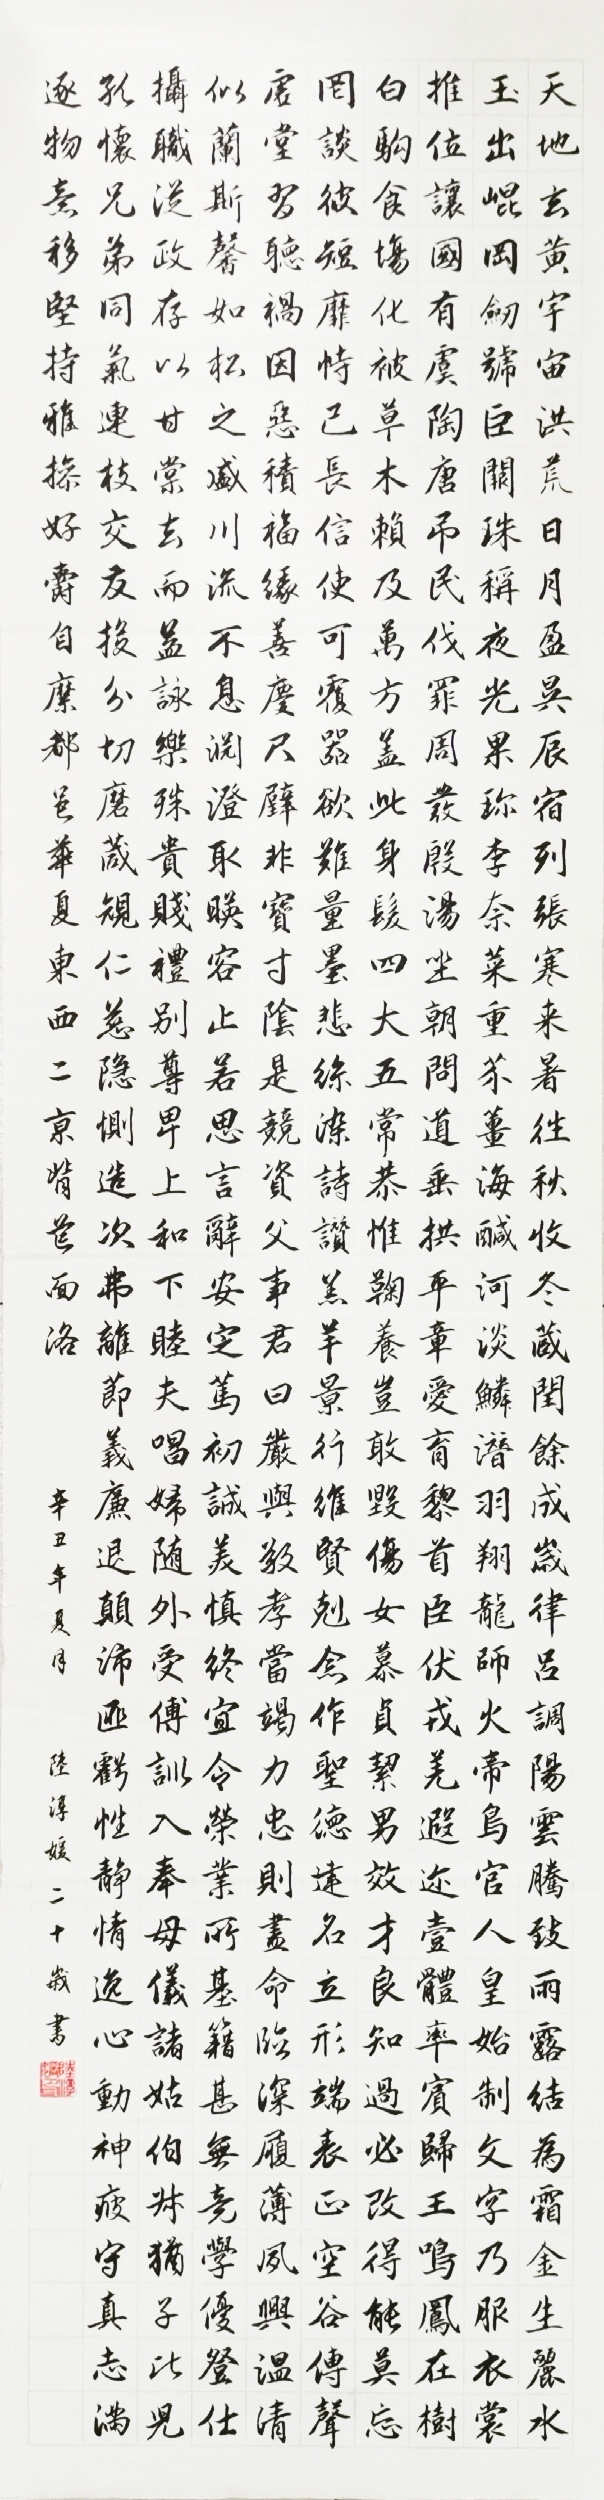 天地玄黃宇宙洪荒日月盈昃辰宿列張寒来暑往秋收冬藏閏餘成歲律呂調陽雲騰致雨露結為霜金生麗水
玉出崐岡劒號巨闕珠稱夜光果珍李柰菜重芥薑海鹹河淡鱗潛羽翔龍師火帝鳥官人皇始制文字乃服衣裳
推位讓國有虞陶唐吊民伐罪周發殷湯坐朝問道垂拱平章愛育黎首臣伏戎羌遐迩壹體率賓歸王鳴鳳在樹
白駒食場化被草木賴及萬方蓋此身髮四大五常恭惟鞠養豈敢毀傷女慕貞絜男效才良知過必改得能莫忘
罔談彼短靡恃己長信使可覆器欲難量墨悲絲染詩讚羔羊景行維賢剋念作聖德建名立形端表正空谷傳聲
虛堂習聽禍因惡積福緣善慶尺璧非寶寸陰是競資父事君曰嚴與敬孝當竭力忠則盡命臨深履薄夙興溫清
似蘭斯馨如松之盛川流不息淵澄取暎容止若思言辭安定篤初誠美慎終宜令榮業所基籍甚無竟學優登仕
攝職從政存以甘棠去而益詠樂殊貴賤禮別尊卑上和下睦夫唱婦随外受傅訓入奉母儀諸姑伯叔猶子比兒
孔懷兄弟同氣連枝交友投分切磨箴規仁慈隐惻造次弗離節義廉退顛沛匪虧性靜情逸心動神疲守真志滿
逐物意移堅持雅操好爵自縻都邑華夏東西二京背芒面洛
辛丑年夏月 陸淳媛二十歲書